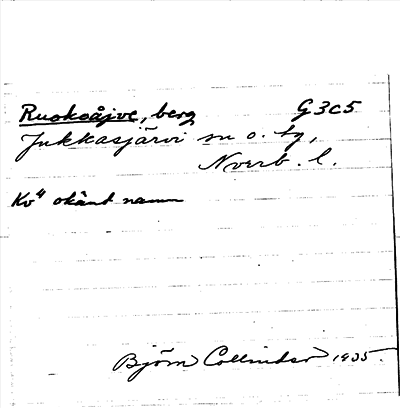 Ruokoåjve, berg G3c5
Jukkasjärvi sn o. tg,
Nverb. l.
Kv" okänt namn
Björn Collinder 1935.